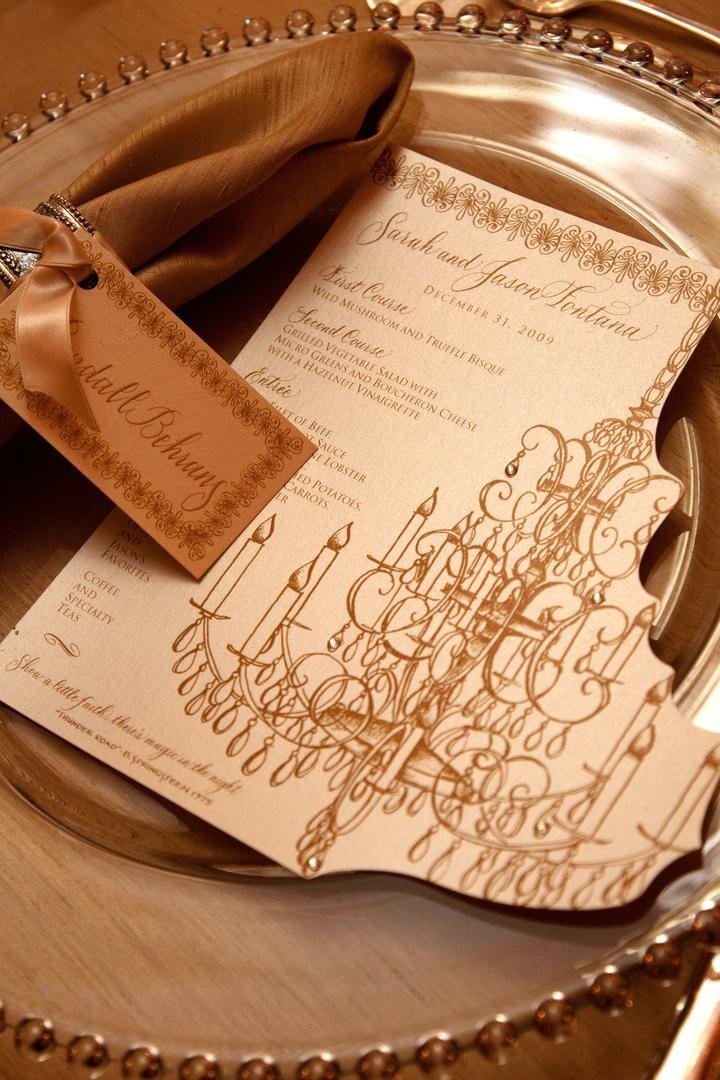 Sarah and Jason Fontana
December 31, 2009
First Course
Wild Mushroom and Truffle Bisque
Second Course
Grilled Vegetable Salad with
Micro Greens and Boucheron Cheese
with a Hazelnut Vinaigrette
Entrée
of Beef,
Sauce
Lobster
Potatoes,
Carrots,
Jason's
Favorites
Coffee
and
Specialty
Teas
Show a little faith, there's magic in the night
"Thunder Road" - B. Springsteen 1975
Behrans